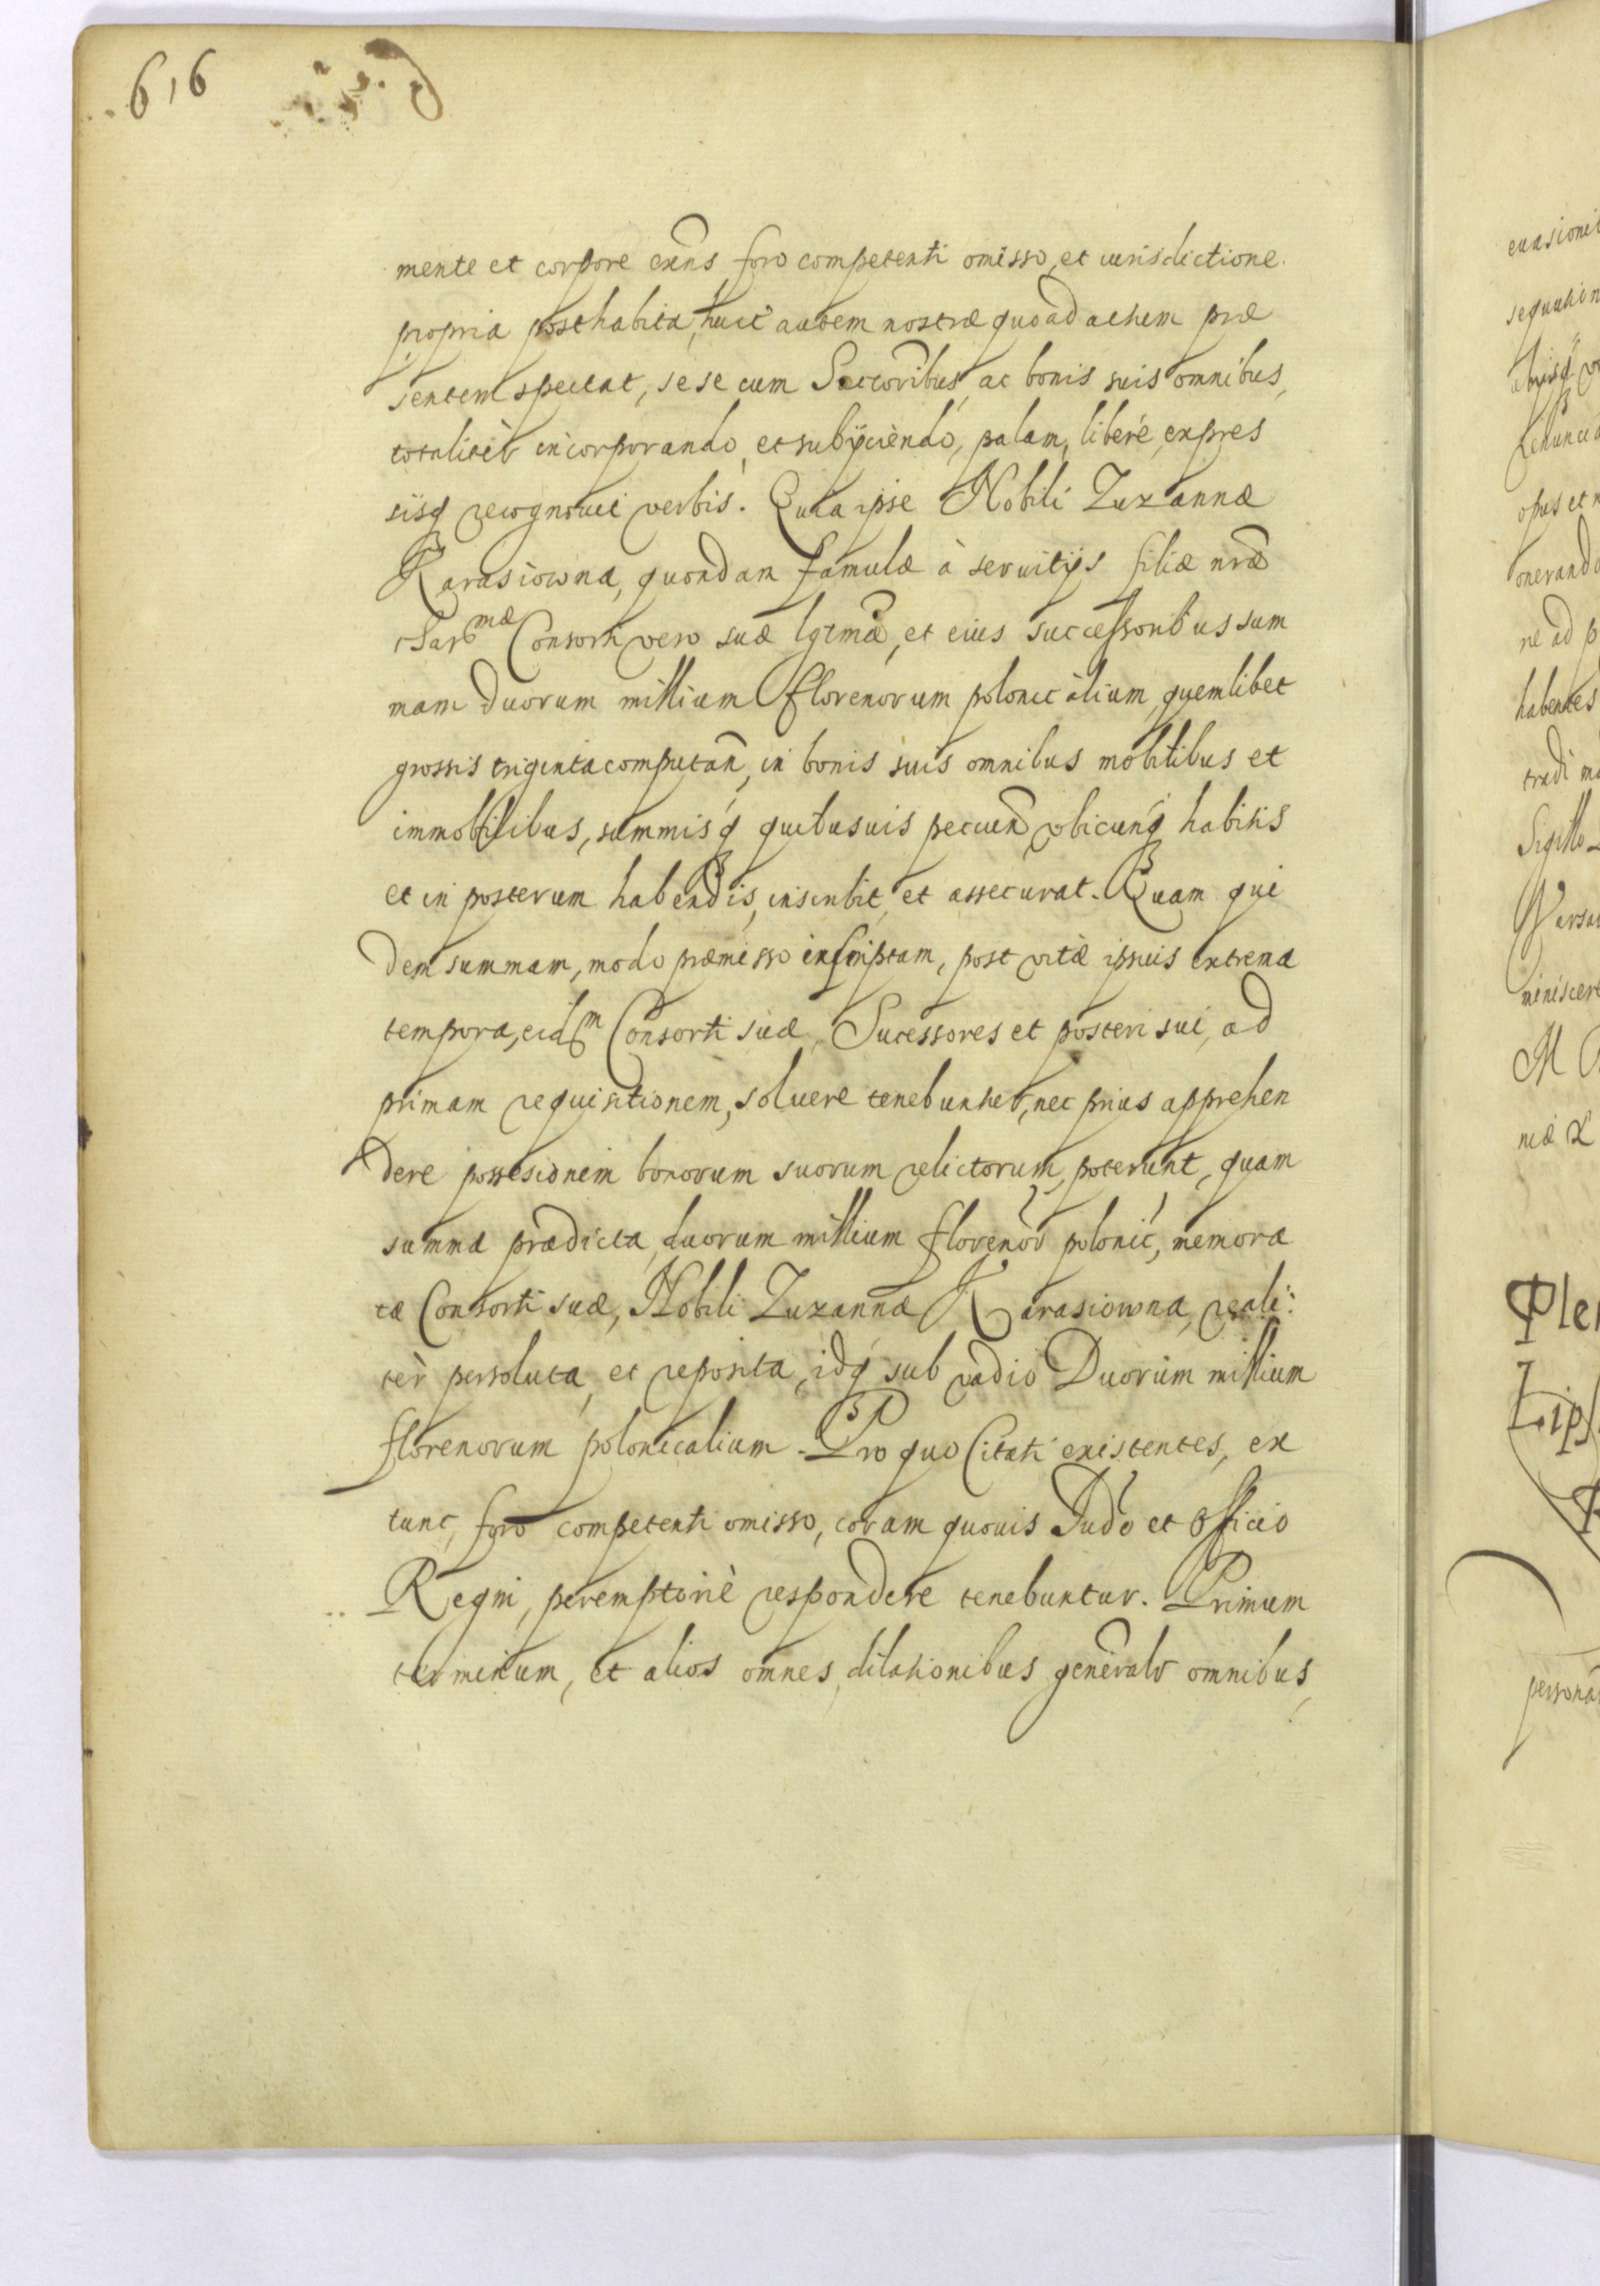 616
mente et corpore exns foro competenti omisso, et iurisdictione
propria posthabita, huic autem nostræ quoad achem præ
sentem spectat, sese cum Succoribus, ac bonis suis omnibus,
totalitèr incorporando, et subijciendo, palam, liberè, expres
sisq recognovit verbis. Quia ipse Nobili Zuzannæ
Karasiowna, quondam famulæ à seruitijs filiæ nræ
Charmæ Consorti vero suæ lgtmæ, et eius successoribus sum
mam duorum millium florenorum polonicalium, quemlibet
grossis triginta computan, in bonis suis omnibus mobilibus et
immobilibus, summisq quibusuis pecuen vbicunq habitis
et in posterum habendis, inscribit, et assecurat. Quam qui
dem summam, modo præmisso inscriptam, post vitæ ipsius extrema
tempora, eidm Consorti suæ, Sucessores et posteri sui, ad
primam requisitionem, soluere tenebuntur, nec prius apprehen
dere possesionem bonorum suorum relictorum, poterunt, quam
summa prædicta, duorum millium florenor polonic, memora
tæ Consorti suæ, Nobili Zuzannæ Karasiowna, reali
tèr persoluta, et reposita, idq sub vadio Duorum millium
florenorum polonicalium. Pro quo Citati existentes, ex
tunc, foro competenti omisso, coram quouis Judo et Officio
Regni, peremptoriè respondere tenebuntur. Primum
terminum, et alios omnes, dilationibus generalr omnibus,